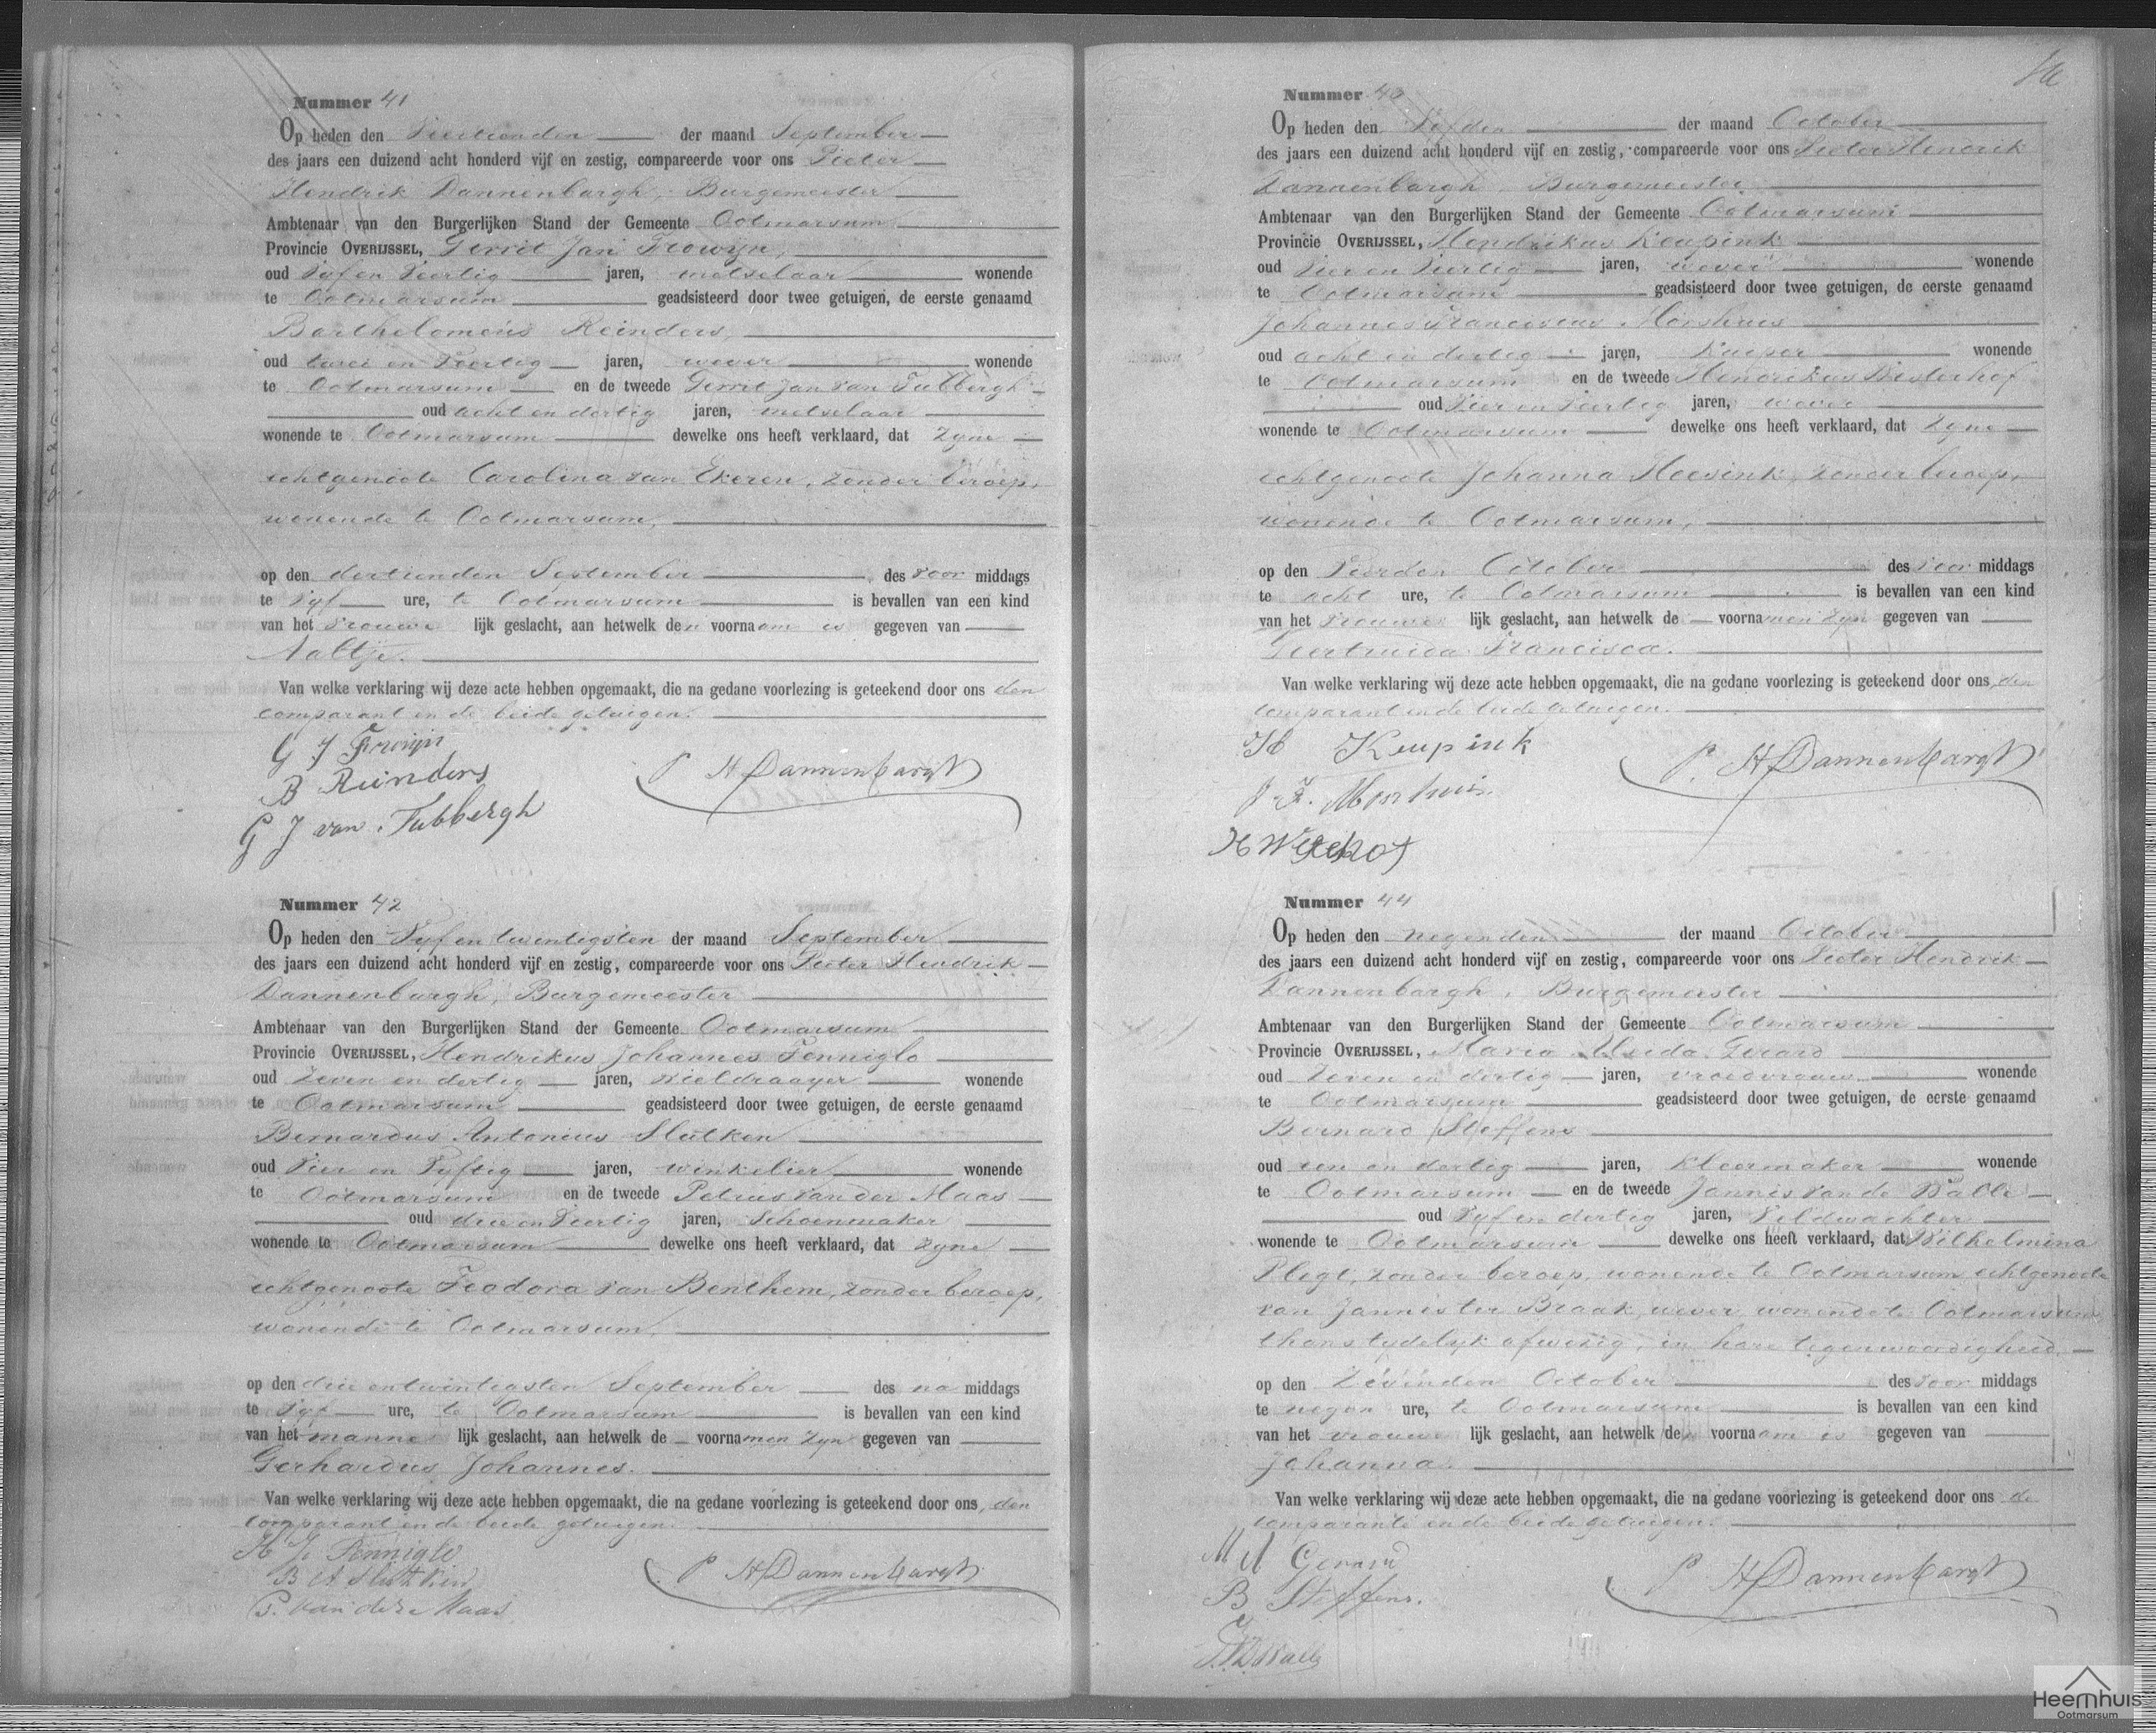 Nummer 41
Op heden den Viertienden der maand September
des jaars een duizend acht honderd vijf en zestig, compareerde voor ons Pieter
Hendrik Dannenbargh, Burgemeester
Ambtenaar van den Burgerlijken Stand der Gemeente Ootmarsum
Provincie OVERIJSSEL, Gerrit Jan Frowyn,
oud Vyf en Veertig jaren, metselaar wonende
te Ootmarsum geadsisteerd door twee getuigen, de eerste genaamd
Bartholomeus Reinders
oud twee en Veertig jaren, wever wonende
te Ootmarsum en de tweede Gerrit Jan van Tubbergh
oud acht en dertig jaren, metselaar
wonende te Ootmarsum dewelke ons heeft verklaard, dat zyne
echtgenoote Carolina van Ekeren, zonder beroep,
wonende te Ootmarsum,
op den dertienden September des voor middags
te Vyf ure, te Ootmarsum is bevallen van een kind
van het vrouwe lijk geslacht, aan hetwelk den voornaam is gegeven van
Aaltje.
Van welke verklaring wij deze acte hebben opgemaakt, die na gedane voorlezing is geteekend door ons den
comparant en de beide getuigen.
G J Frowijn
B Reinders
G J van Tubbergh
P H Dannenbargh
Nummer 42
Op heden den Vyf en twentigsten der maand September
des jaars een duizend acht honderd vijf en zestig, compareerde voor ons Pieter Hendrik
Dannenbargh, Burgemeester
Ambtenaar van den Burgerlijken Stand der Gemeente Ootmarsum
Provincie OVERIJSSEL, Hendrikus Johannes Fenniglo
oud Zeven en dertig jaren, wieldraayer wonende
te Ootmarsum geadsisteerd door twee getuigen, de eerste genaamd
Bernardus Antonius Slutken
oud Vier en Vyftig jaren, winkelier wonende
te Ootmarsum en de tweede Petrus van der Maas
oud drie en Veertig jaren, Schoenmaker
wonende te Ootmarsum dewelke ons heeft verklaard, dat zyne
echtgenoote Feodora van Benthem, zonder beroep,
wonende te Ootmarsum,
op den drie en twintigsten September des na middags
te Vyf ure, te Ootmarsum is bevallen van een kind
van het manne lijk geslacht, aan hetwelk de voornamen zyn gegeven van
Gerhardus Johannes.
Van welke verklaring wij deze acte hebben opgemaakt, die na gedane voorlezing is geteekend door ons, den
comparant en de beide getuigen.
H J Fenniglo
B A Slutken
P. van der Maas
P H Dannenbargh
Nummer 43
Op heden den Vyfden der maand October
des jaars een duizend acht honderd vijf en zestig, compareerde voor ons Pieter Hendrik
Dannenbargh, Burgemeester
Ambtenaar van den Burgerlijken Stand der Gemeente Ootmarsum
Provincie OVERIJSSEL, Hendrikus Keupink
oud Vier en Veertig jaren, wever wonende
te Ootmarsum geadsisteerd door twee getuigen, de eerste genaamd
Johannes Franciscus Morshuis
oud acht en dertig jaren, Kuiper wonende
te Ootmarsum en de tweede Hendrikus
oud Vier en Veertig jaren, wever
wonende te Ootmarsum dewelke ons heeft verklaard, dat zyne
echtgenoote Johanna Heesink, zonder beroep,
wonende te Ootmarsum,
op den Vierden October des voor middags
te acht ure, te Ootmarsum is bevallen van een kind
van het vrouwe lijk geslacht, aan hetwelk de voornamen zyn gegeven van
Geertruida Francisca.
Van welke verklaring wij deze acte hebben opgemaakt, die na gedane voorlezing is geteekend door ons, den
comparant en de beide getuigen.
H Keupink
J. F. Morshuis
P. H Dannenbargh
Nummer 44
Op heden den negenden der maand October
des jaars een duizend acht honderd vijf en zestig, compareerde voor ons Pieter Hendrik
Dannenbargh, Burgemeester
Ambtenaar van den Burgerlijken Stand der Gemeente Ootmarsum
Provincie OVERIJSSEL, Maria Gerard
oud Zeven en dertig jaren, vroedvrouw wonende
te Ootmarsum geadsisteerd door twee getuigen, de eerste genaamd
Bernard Steffens
oud een en dertig jaren, Kleermaker wonende
te Ootmarsum en de tweede Jannis van de Walle
oud Vyf en dertig jaren, Veldwachter
wonende te Ootmarsum dewelke ons heeft verklaard, dat Wilhelmina
Plegt, zonder beroep, wonende te Ootmarsum echtgenoote
van Jannis ter Braak, wever wonende te Ootmarsum
thans tydelyk afwezig, in hare tegenwoordigheid,
op den Zevenden October des voor middags
te negen ure, te Ootmarsum is bevallen van een kind
van het vrouwe lijk geslacht, aan hetwelk den voornaam is gegeven van
Johanna.
Van welke verklaring wij deze acte hebben opgemaakt, die na gedane voorlezing is geteekend door ons de
comparante en de beide getuigen.
M A Gerard
B Steffens.
P H Dannenbargh
Heemhuis
Ootmarsum